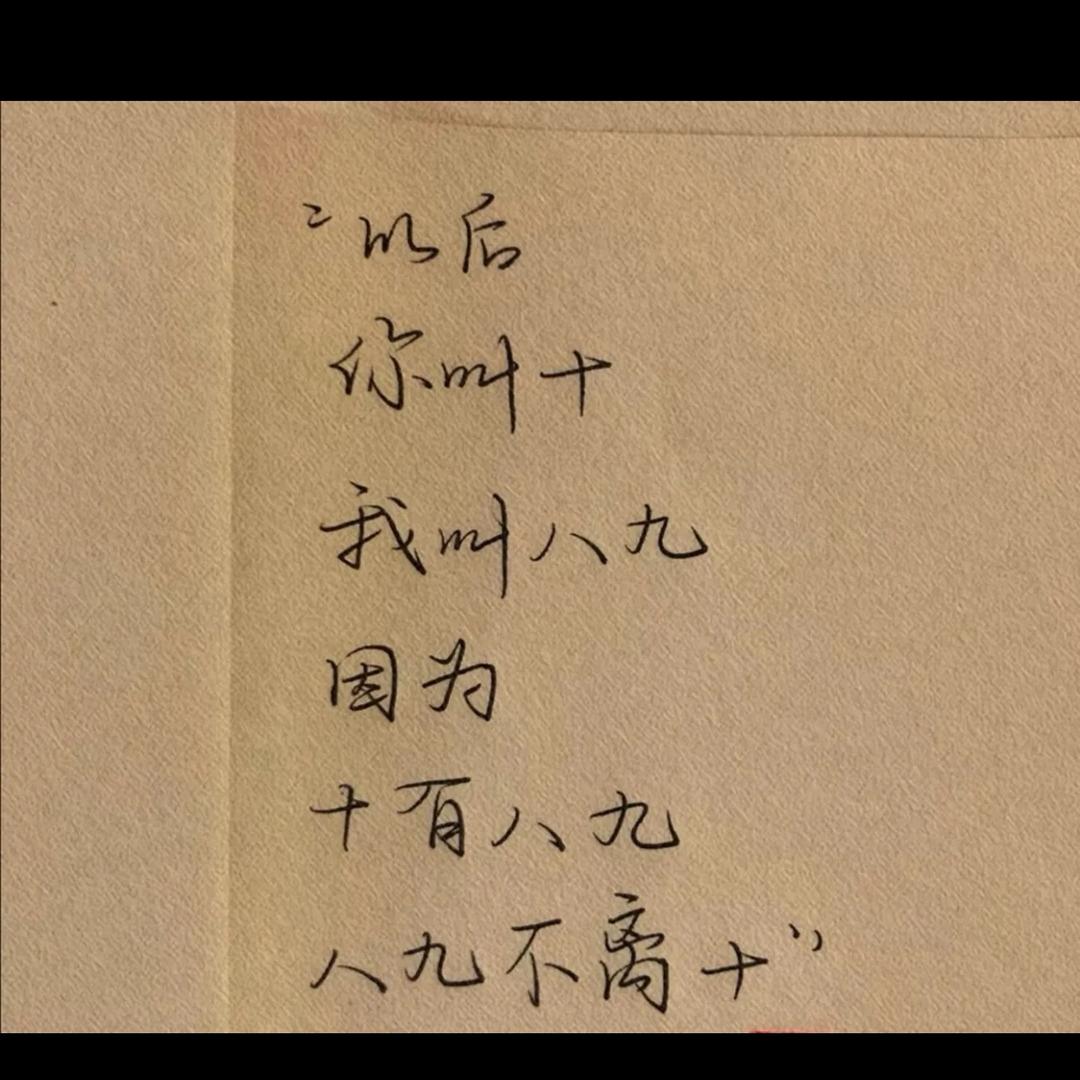 “以后
你叫十
我叫八九
因为
十有八九
八九不离十”